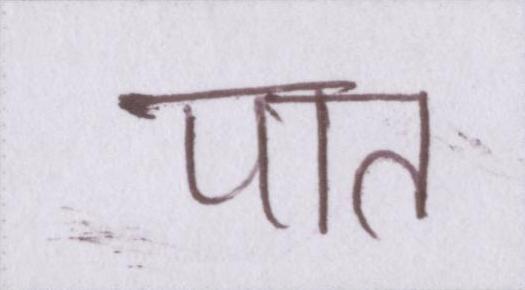 पात